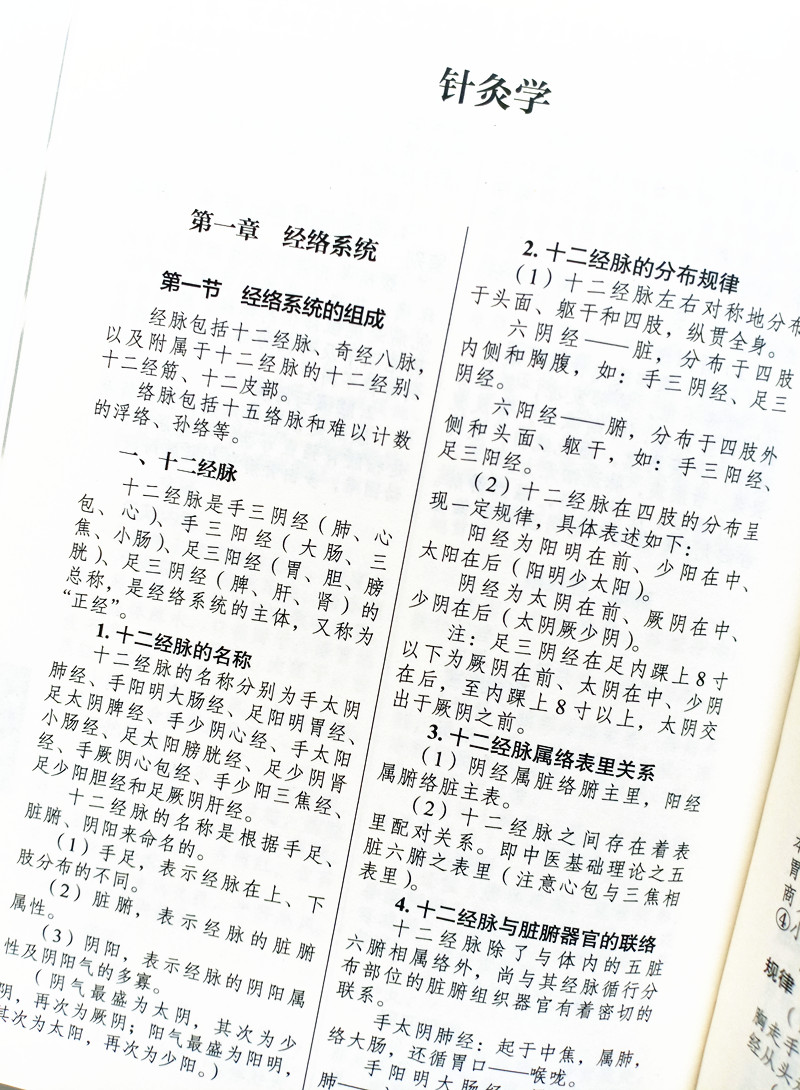 针灸学
第一章 经络系统
第一节 经络系统的组成
经脉包括十二经脉、奇经八脉，
以及附属于十二经脉的十二经别、
十二经筋、十二皮部。
络脉包括十五络脉和难以计数
的浮络、孙络等。
一、十二经脉
十二经脉是手三阴经（肺、心
包、心）、手三阳经（大肠、三
焦、小肠）、足三阳经（胃、胆、膀
胱）、足三阴经（脾、肝、肾）的
总称，是经络系统的主体，又称为
“正经”。
1. 十二经脉的名称
十二经脉的名称分别为手太阴
肺经、手阳明大肠经、足阳明胃经、
足太阴脾经、手少阴心经、手太阳
小肠经、足太阳膀胱经、足少阴肾
经、手厥阴心包经、手少阳三焦经、
足少阳胆经和足厥阴肝经。
十二经脉的名称是根据手足、
脏腑、阴阳来命名的。
（1）手足，表示经脉在上、下
肢分布的不同。
（2）脏腑，表示经脉的脏腑
属性。
（3）阴阳，表示经脉的阴阳属
性及阴阳气的多寡。
（阴气最盛为太阴，其次为少
阴，再次为厥阴；阳气最盛为阳明，
其次为太阳，再次为少阳。）
2. 十二经脉的分布规律
（1）十二经脉左右对称地分布
于头面、躯干和四肢，纵贯全身。
六阴经——脏，分布于四肢
内侧和胸腹，如：手三阴经、足三
阴经。
六阳经——腑，分布于四肢外
侧和头面、躯干，如：手三阳经、
足三阳经。
（2）十二经脉在四肢的分布呈
现一定规律，具体表述如下：
阳经为阳明在前、少阳在中、
太阳在后（阳明少太阳）。
阴经为太阴在前、厥阴在中、
少阴在后（太阴厥少阴）。
注：足三阴经在足内踝上8寸
以下为厥阴在前、太阴在中、少阴
在后，至内踝上8寸以上，太阴交
出于厥阴之前。
3. 十二经脉属络表里关系
（1）阴经属脏络腑主里，阳经
属腑络脏主表。
（2）十二经脉之间存在着表
里配对关系。即中医基础理论之五
脏六腑之表里（注意心包与三焦相
表里）。
4. 十二经脉与脏腑器官的联络
十二经脉除了与体内的五脏
六腑相属络外，尚与其经脉循行分
布部位的脏腑组织器官有着密切的
联系。
手太阴肺经：起于中焦，属肺，
络大肠，还循胃口——喉咙。
手阳明大肠经
肺——
胃
商
④小
规律
胸走手
经从头